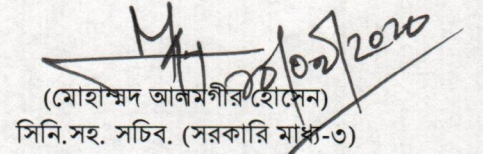 ২০২০
(মোহাম্মদ আলমগীর হোসেন)
সিনি.সহ. সচিব. (সরকারি মাধ্য-৩)